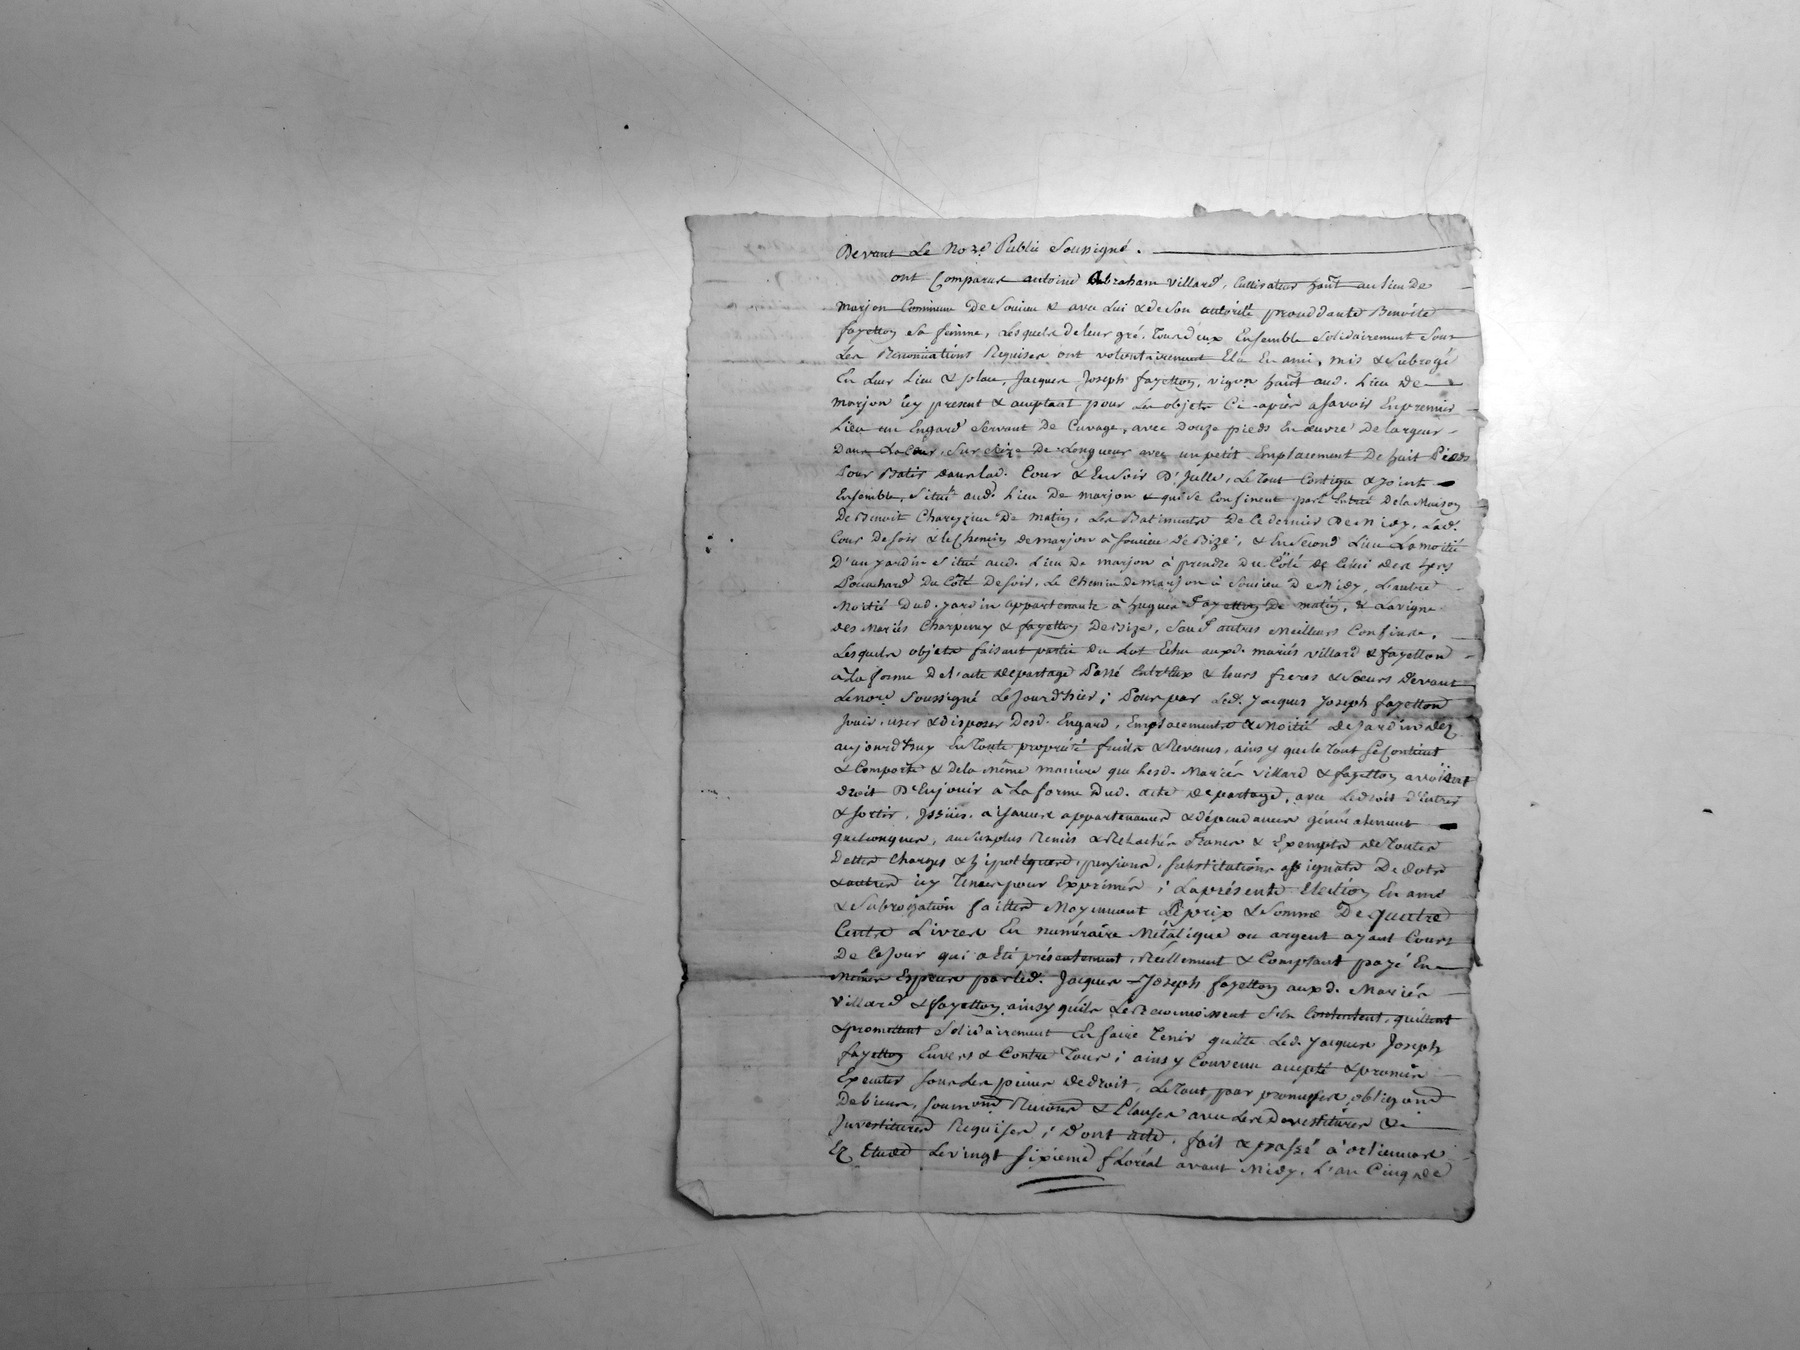 Devant Le No.re Public Soussigné.
ont Comparus antoine Abraham villard, Cultivateur hant au lieu De
marjon Commune De Soucieu & avec Lui & de Son autorité procedante Benoite
fayetton Sa femme, Lesquels de leur gré, tous deux Ensemble Solidairement Sous
Les Renonciations Requises ont volontairement Elu En ami, mis & Subrogé
En Leur Lieu & place, Jacques Joseph fayetton, vigon hant aud. Lieu De
marjon icy present & acceptant pour Les objets Ci-après asavoir En premier
Lieu un Engard Servant De Cuvage, avec Douze pieds En œuvre De largeur
Dans La Cour, Sur seize De Longueur avec un petit Emplacement De huit Pieds
Pour Batir dans lad. Cour & En Soir D'Jelle, Le Tout Contigu & Joint
Ensemble, Situé aud. Lieu De marjon & qui se Confinent par Entrée De la Maison
De Benoit Chareyzieu De matin, Les Batiments De Ce dernier De Midy, Lad.
Cour De Soir & le Chemin de marjon à Soucieu De Bize, & En Second Lieu La moitié
D'un jardin Situé aud. Lieu De marjon à prendre Du Côté De Celui des
Pouchard Du Côté De Soir, Le Chemin De marjon à Soucieu De Midy, L'autre
Moitié Dud. jardin appartenante à hugues fayetton De matin, & La vigne
des Mariés Charpenay & fayetton De Bize, Sauf autres Meilleurs Confins,
Lesquels objets faisant partie Du Lot Echu auxd. mariés villard & fayetton
à La forme De l'acte de partage Passé Entr'Eux & leurs freres & Sœurs Devant
Le no.re Soussigné Le Jour d'hier; Pour par Led. Jacques Joseph fayetton
Jouir, user & disposer Desd. Engard, Emplacement & Moitié de Jardin dez
aujourd'huy En Toute propriété fruits & Revenus, ainsy que le Tout Se Contient
& Comporte & De la Même maniere que Lesd. Mariés villard & fayetton avoient
droit D'En jouir à La forme Dud. acte de partage, avec Le droit d'Entrer
& Sortir, Jssues, aisances appartenances & dépendances généralement
quelconques, au Surplus Remis & Relachés francs & Exempts de Toutes
Dettes Charges & hipotéques, pensions, Substitutions assignats De dots
& autres icy Tenus pour Exprimés; La présente Election En ami
& Subrogation faittes Moyennant Le prix & Somme De quatre
Cents Livres En numéraire Métalique ou argent ayant Cours
De Ce Jour qui a été présentement, Réellement & Comptant payé En
Mêmes Especes par Led. Jacques-Joseph fayetton auxd. Mariés
villard & fayetton, ainsy qu'ils Le Reconnoissent S'En Contentent, quittent
& promettent Solidairement En faire Tenir quitte Led. Jacques Joseph
fayetton Envers & Contre Tous; ainsy Convenu accepté & promis
Executer Sous Les peines de droit, Le Tout par promesses, obligaond
De biens, Soumond Renond & Clauses avec Les Devestitures &
Jnvestitures Requises; Dont acte, fait & passé à orlienas
Ez Etude Le vingt Sixieme floréal avant Midy, L'an Cinq de